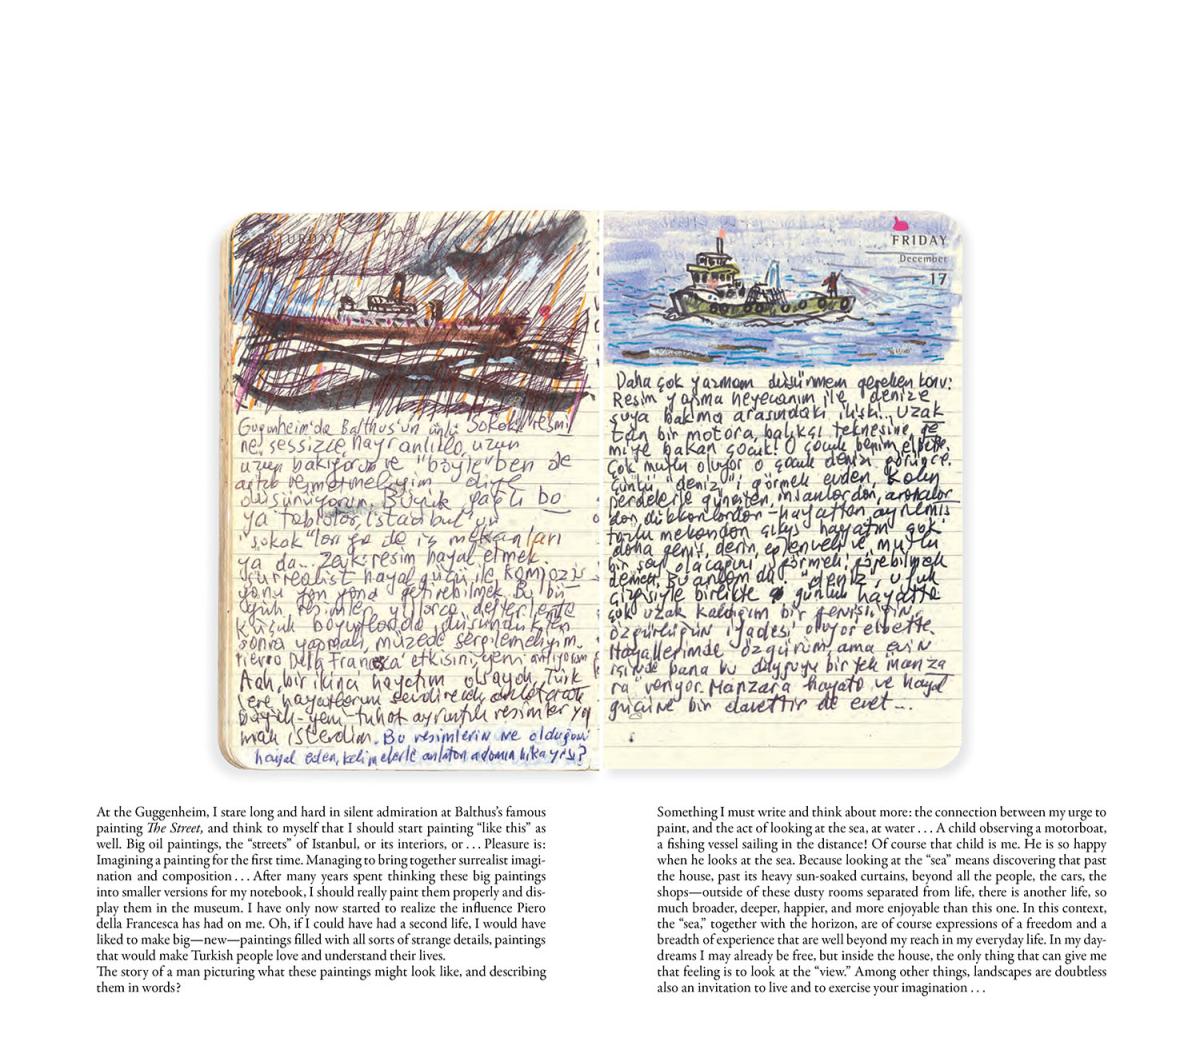 SATURDAY
Gugenheim'da Balthus'un ünlü Sokak resmi
ne sessizce, hayranlıkla, uzun
uzun bakıyorum ve "böyle" ben de
artık resmetmeliyim diye
düşünüyorum. Büyük yağlı bo
ya tablolar, İstanbul'un
"sokak"ları ya da iç mekanları
ya da... Zevk: resim hayal etmek.
Sürrealist hayal gücü ile kompozis
yonu yan yana getirebilmek. Bu bü
yük resimler yıllarca defterlerde
küçük boyutlarda düşündükten
sonra yapmalı, müzede sergilemeliyim.
Pierro Della Francesca etkisini yeni anlıyorum
Aah, bir ikinci hayatım olsaydı, Türk
lere hayatlarını sevdirecek anlatacak
büyük-yeni-tuhaf ayrıntılı resimler yap
mak isterdim. Bu resimlerin ne olduğunu
hayal eden, kelimelerle anlatan adamın hikayesi?
FRIDAY
December
17
Daha çok yazmam düşünmem gereken konu:
Resim yapma heyecanım ile denize
suya bakma arasındaki ilişki.. Uzak
tan bir motora, balıkçı teknesine, ge
miye bakan çocuk! O çocuk benim elbette.
Çok mutlu oluyor o çocuk denizi görünce.
Çünkü "deniz"i görmek evden, kalın
perdelerle güneşten, insanlardan, arabalar
dan, dükkanlardan - hayattan ayrılmış
tozlu mekandan çıkış hayatın çok
daha geniş, derin, eğlenceli ve mutlu
bir şey olacağını görmek, görebilmek
demek. Bu anlamda "deniz", ufuk
çizgisiyle birlikte günlük hayatta
çok uzak kaldığım bir genişliğin,
özgürlüğün ifadesi oluyor elbette.
Hayallerimde özgürüm ama evin
içinde bana bu duyguyu bir tek manza
ra veriyor. Manzara hayata ve hayal
gücüne bir davettir de evet...
At the Guggenheim, I stare long and hard in silent admiration at Balthus's famous
painting The Street, and think to myself that I should start painting "like this" as
well. Big oil paintings, the "streets" of Istanbul, or its interiors, or . . . Pleasure is:
Imagining a painting for the first time. Managing to bring together surrealist imagi-
nation and composition . . . After many years spent thinking these big paintings
into smaller versions for my notebook, I should really paint them properly and dis-
play them in the museum. I have only now started to realize the influence Piero
della Francesca has had on me. Oh, if I could have had a second life, I would have
liked to make big—new—paintings filled with all sorts of strange details, paintings
that would make Turkish people love and understand their lives.
The story of a man picturing what these paintings might look like, and describing
them in words?
Something I must write and think about more: the connection between my urge to
paint, and the act of looking at the sea, at water . . . A child observing a motorboat,
a fishing vessel sailing in the distance! Of course that child is me. He is so happy
when he looks at the sea. Because looking at the "sea" means discovering that past
the house, past its heavy sun-soaked curtains, beyond all the people, the cars, the
shops—outside of these dusty rooms separated from life, there is another life, so
much broader, deeper, happier, and more enjoyable than this one. In this context,
the "sea," together with the horizon, are of course expressions of a freedom and a
breadth of experience that are well beyond my reach in my everyday life. In my day-
dreams I may already be free, but inside the house, the only thing that can give me
that feeling is to look at the "view." Among other things, landscapes are doubtless
also an invitation to live and to exercise your imagination . . .